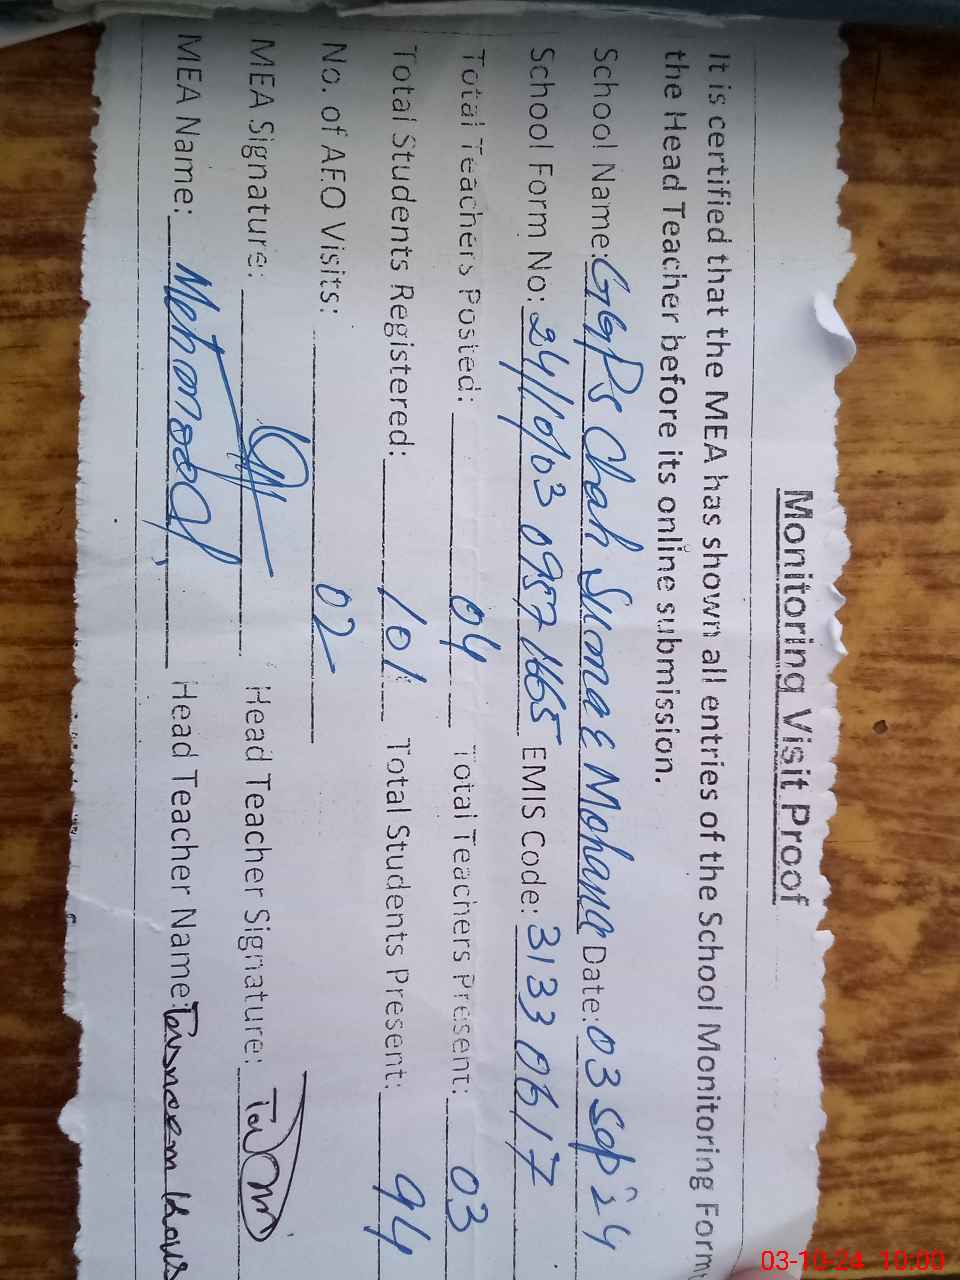 Monitoring Visit Proof
It is certified that the MEA has shown all entries of the School Monitoring Form
the Head Teacher before its online submission.
School Name: GGPS Chah Mohana Date: 03 Sep 24
School Form No: EMIS Code: 31330617
Total Teachers Posted: 04 Total Teachers Present: 03
Total Students Registered: 101 Total Students Present: 94
No. of AEO Visits: 02
MEA Signature: Head Teacher Signature:
MEA Name: Mehmood Head Teacher Name: Tasneem
03-10-24 10:00